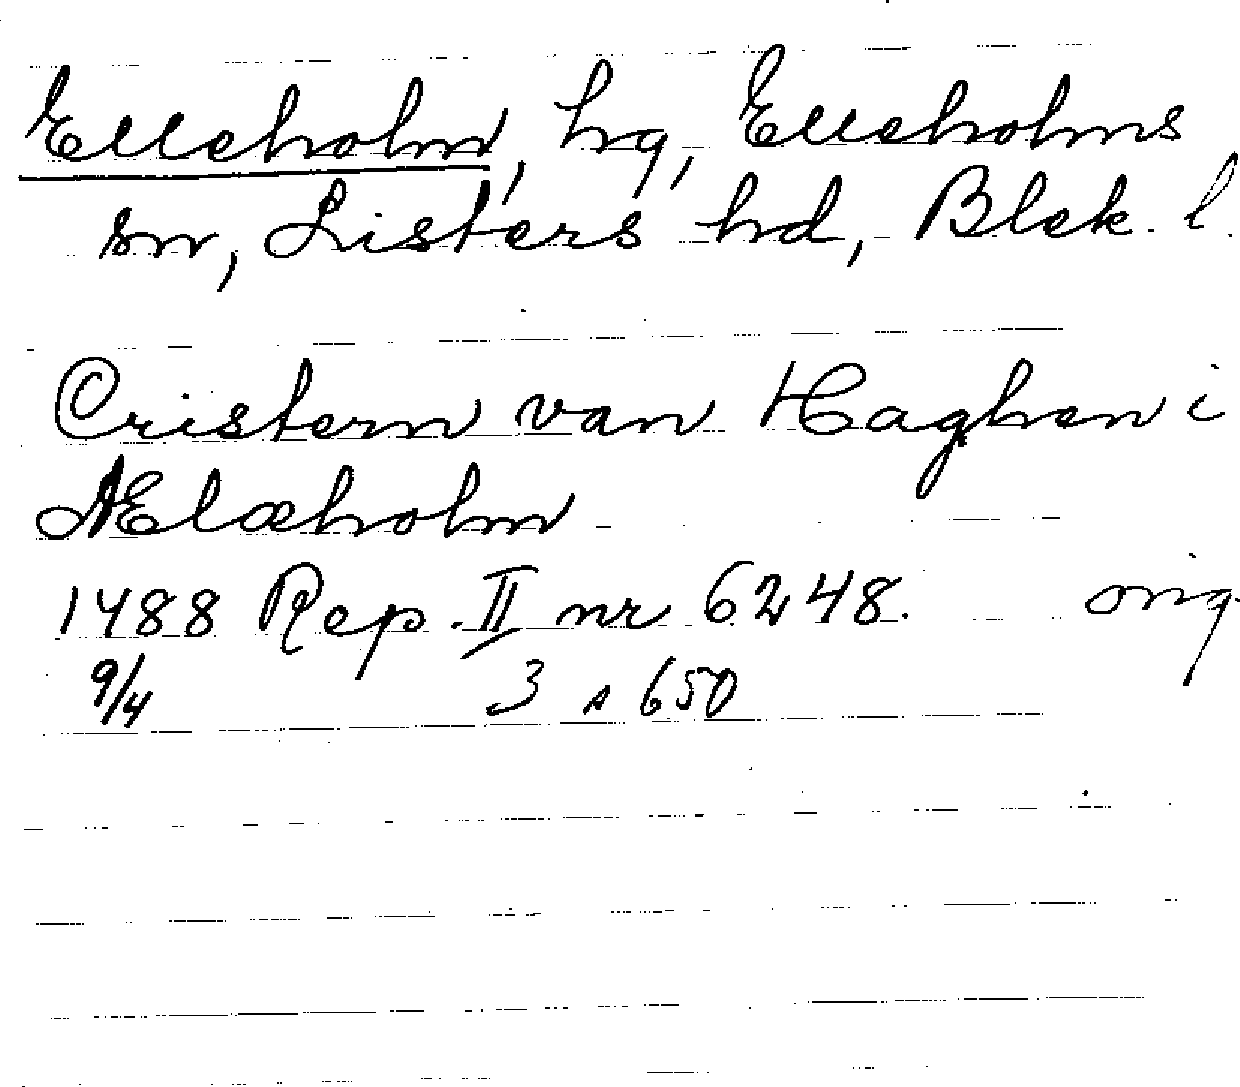 Elleholm, hg, Elleholms
sn, Listers hd, Blek. l.
Cristern van Haghen i
AElæholm
1488 Rep. II nr 6248. orig.
9/4 3 s 650